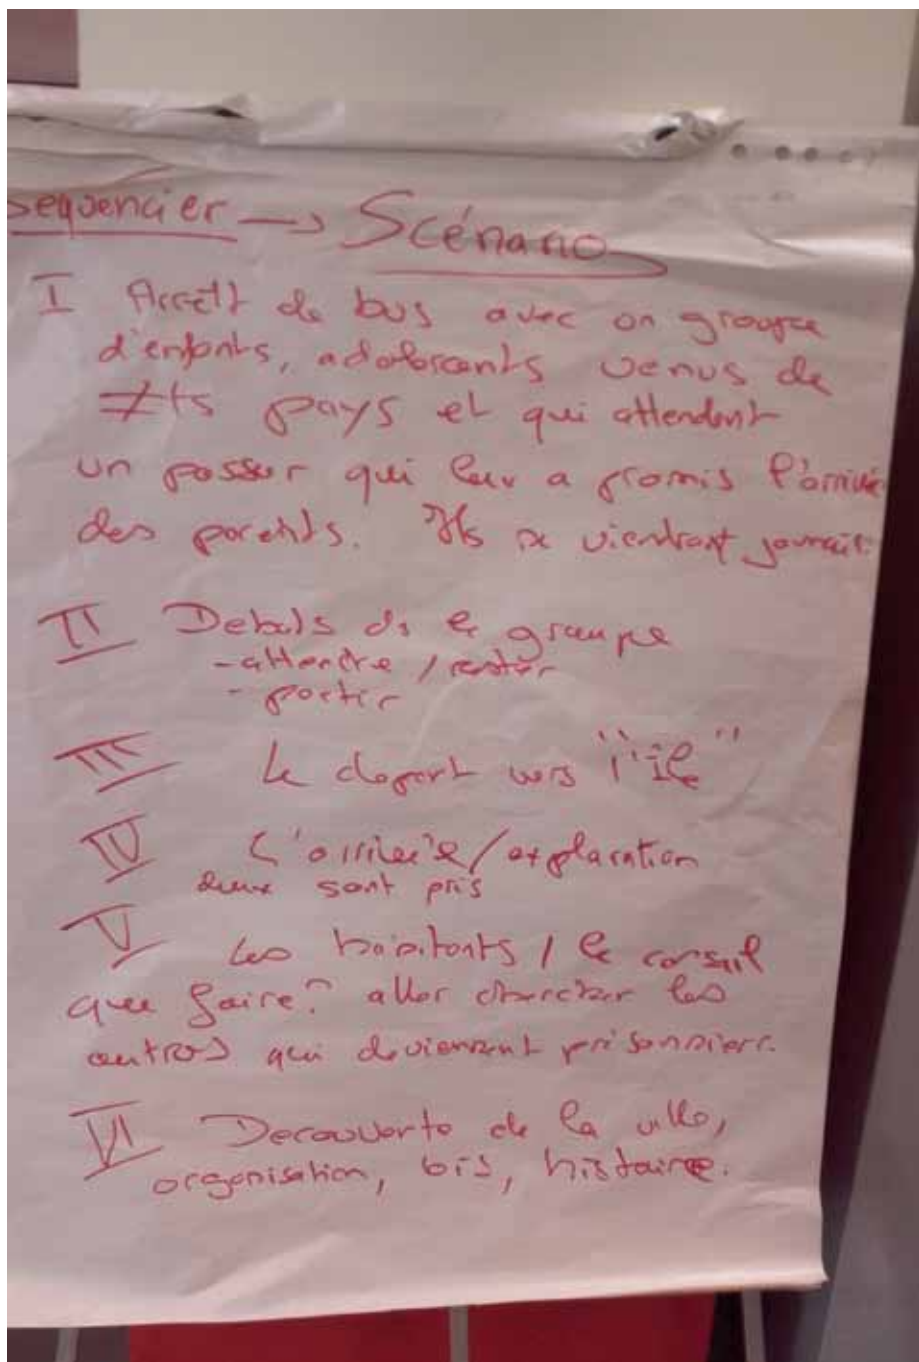 Sequencier → Scénario
I Arrêtt de bus avec un groupe
d'enfants, adolescents venus de
≠ts pays et qui attendent
un passeur qui leur a promis l'arrivée
des parents. Ils ne viendront jamais.
II Debats ds le groupe
- attendre / rester
- partir
III Le depart vers "l'île"
IV L'arrivée / exploration
deux sont pris
V Les habitants / le conseil
que faire? aller chercher les
autres qui deviennent prisonniers.
VI Decouverte de la ville,
organisation, lois, histoire.